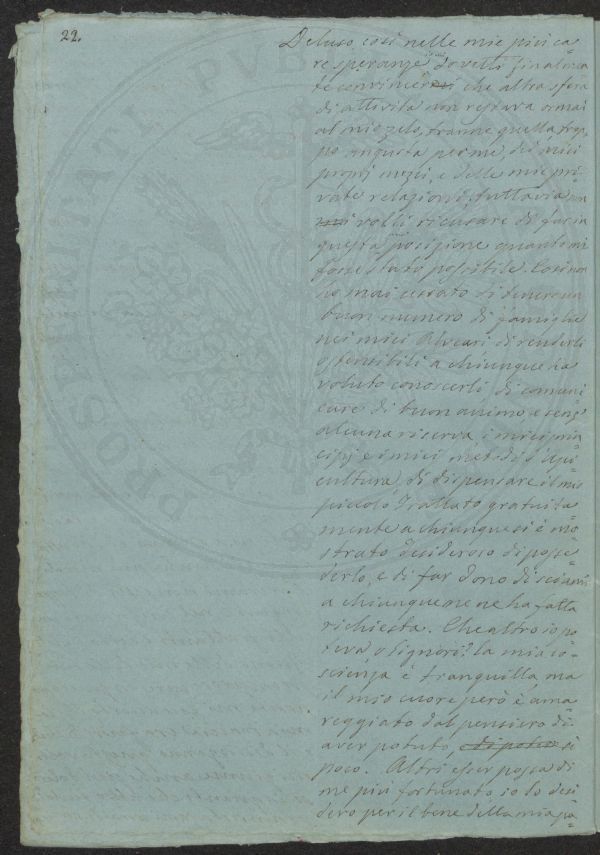 22.
Deluso così nelle mie più ca=
re speranze dovetti finalmen
te convincermi che altra sfera
di attività non restava ormai
al mio zelo, tranne quella trop
po angusta per me, di miei
proprj mezzi, e delle mie pri=
vate relazioni, tuttavia non
volli ricusare di far in
questa posizione quanto mi
fosse stato possibile. Così non
ho mai cessato di tenere un
buon numero di famiglie
nei miei Alveari di renderli
ostensibili a chiunque ha
voluto conoscerli, di comuni
care di buon animo, e senz'
alcuna riserva, i miei prin=
cipj e i miei metodi d'Api
cultura, di dispensare il mio
piccolo Trattato gratuita
mente a chiunque si è mo=
strato desideroso di posse=
derlo, e di far dono di sciami
a chiunque me ne ha fatta
richiesta. Che altro io po
teva o Signori? la mia co=
scienza è tranquilla, ma
il mio cuore però è ama
reggiato dal pensiero di
aver potuto, e di poter sì
poco. Altri esser possa di
me più fortunato io lo desi
dero per il bene della mia pa=
PROSPERITATI PVB